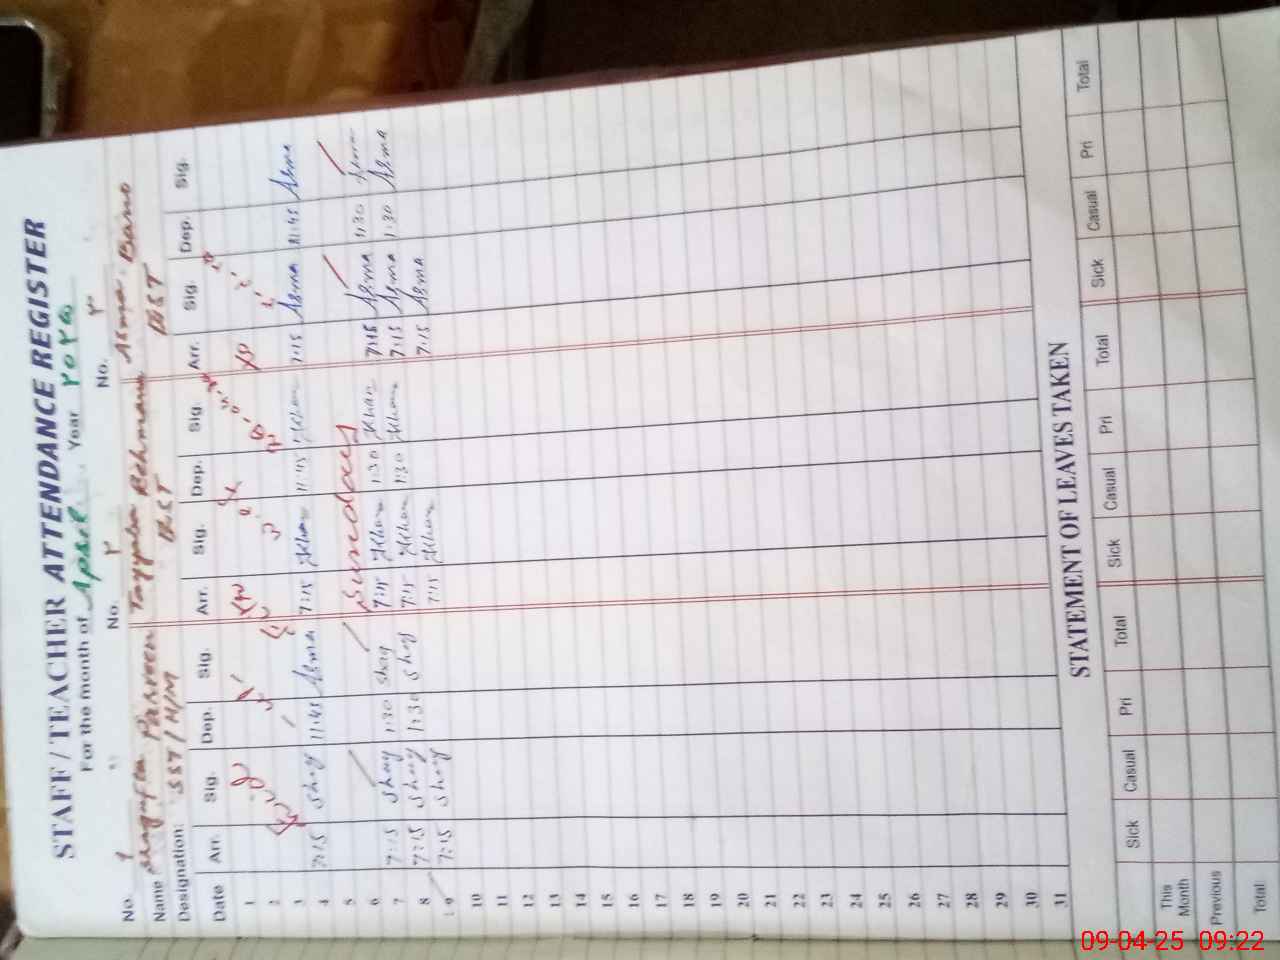 STAFF / TEACHER ATTENDANCE REGISTER
For the month of April Year ۲۰۲۵
No. ۱ No. ۲ No. ۳
Name Shagufta Parveen Tayyaba Rehmana Asma Bano
Designation: SST / H/M B.S.T B.S.T
Date Arr. Sig. Dep. Sig. Arr. Sig. Dep. Sig. Arr. Sig. Dep. Sig.
1
2
3
4 7:15 Shag 11:45 Asma 7:15 Khan 11:45 Khan 7:15 Asma 11:45 Asma
5
6 Sunday
7 7:15 Shag 1:30 Shag 7:15 Khan 1:30 Khan 7:15 Asma 1:30 Asma
8 7:15 Shag 1:30 Shag 7:15 Khan 1:30 Khan 7:15 Asma 1:30 Asma
9 7:15 Shag 7:15 Khan 7:15 Asma
10
11
12
13
14
15
16
17
18
19
20
21
22
23
24
25
26
27
28
29
30
31
STATEMENT OF LEAVES TAKEN
Sick Casual Pri Total Sick Casual Pri Total Sick Casual Pri Total
This Month
Previous
Total
09-04-25 09:22